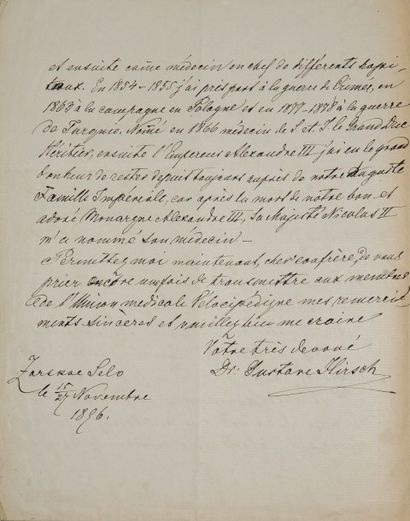 et ensuite comme médecin en chef de différents hopi-
taux. En 1854-1855 j'ai pris part à la guerre de Crimée, en
1863 à la campagne en Pologne et en 1877-1878 à la guerre
de Turquie. Nomé en 1866 médecin de S. et I. le Grand Duc
Héritier, ensuite l'Empereur Alexandre III j'ai eu le grand
bonheur de rester depuis toujours auprès de notre Auguste
Famille Impériale, car après la mort de notre bon et
adoré Monarque Alexandre III, Sa Majesté Nicolas II
m'a nommé son médecin -
Permettez moi maintenant, cher confrère, de vous
prier encore une fois de transmettre aux membres
de l'Union médicale Velocipédique mes remerci-
ments sincères et veuillez bien me croire
Votre très devoué
Dr. Gustave Hirsch
Zarskoe Selo
le 15/27 Novembre
1896.